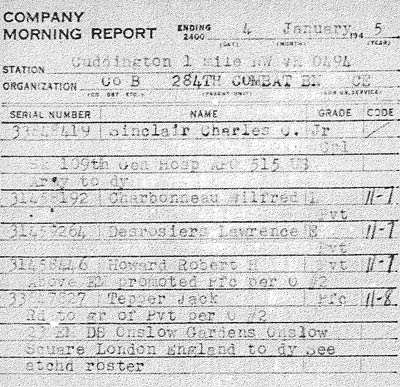 COMPANY
MORNING REPORT ENDING 2400 4 January 1945
(DAY) (MONTH) (YEAR)
STATION Cuddington 1 mile NW VR 0494
ORGANIZATION Co B 284TH COMBAT BN CE
(CO. BT. ETC.) (PARENT UNIT) (ARM OR SERVICE)
SERIAL NUMBER NAME GRADE CODE
Sinclair Charles Jr
Cpl
109th Gen Hosp APO 515 US
Army to dy
31458192 Charbonneau Wilfred L 11-7
Pvt
31458264 Desrosiers Lawrence E 11-7
Pvt
31458446 Howard Robert H Pvt 11-7
Above EM promoted Pfc per O #2
Tepper Jack Pfc 11-8
Rd to gr of Pvt per O #2
EM DS Onslow Gardens Onslow
Square London England to dy See
atchd roster